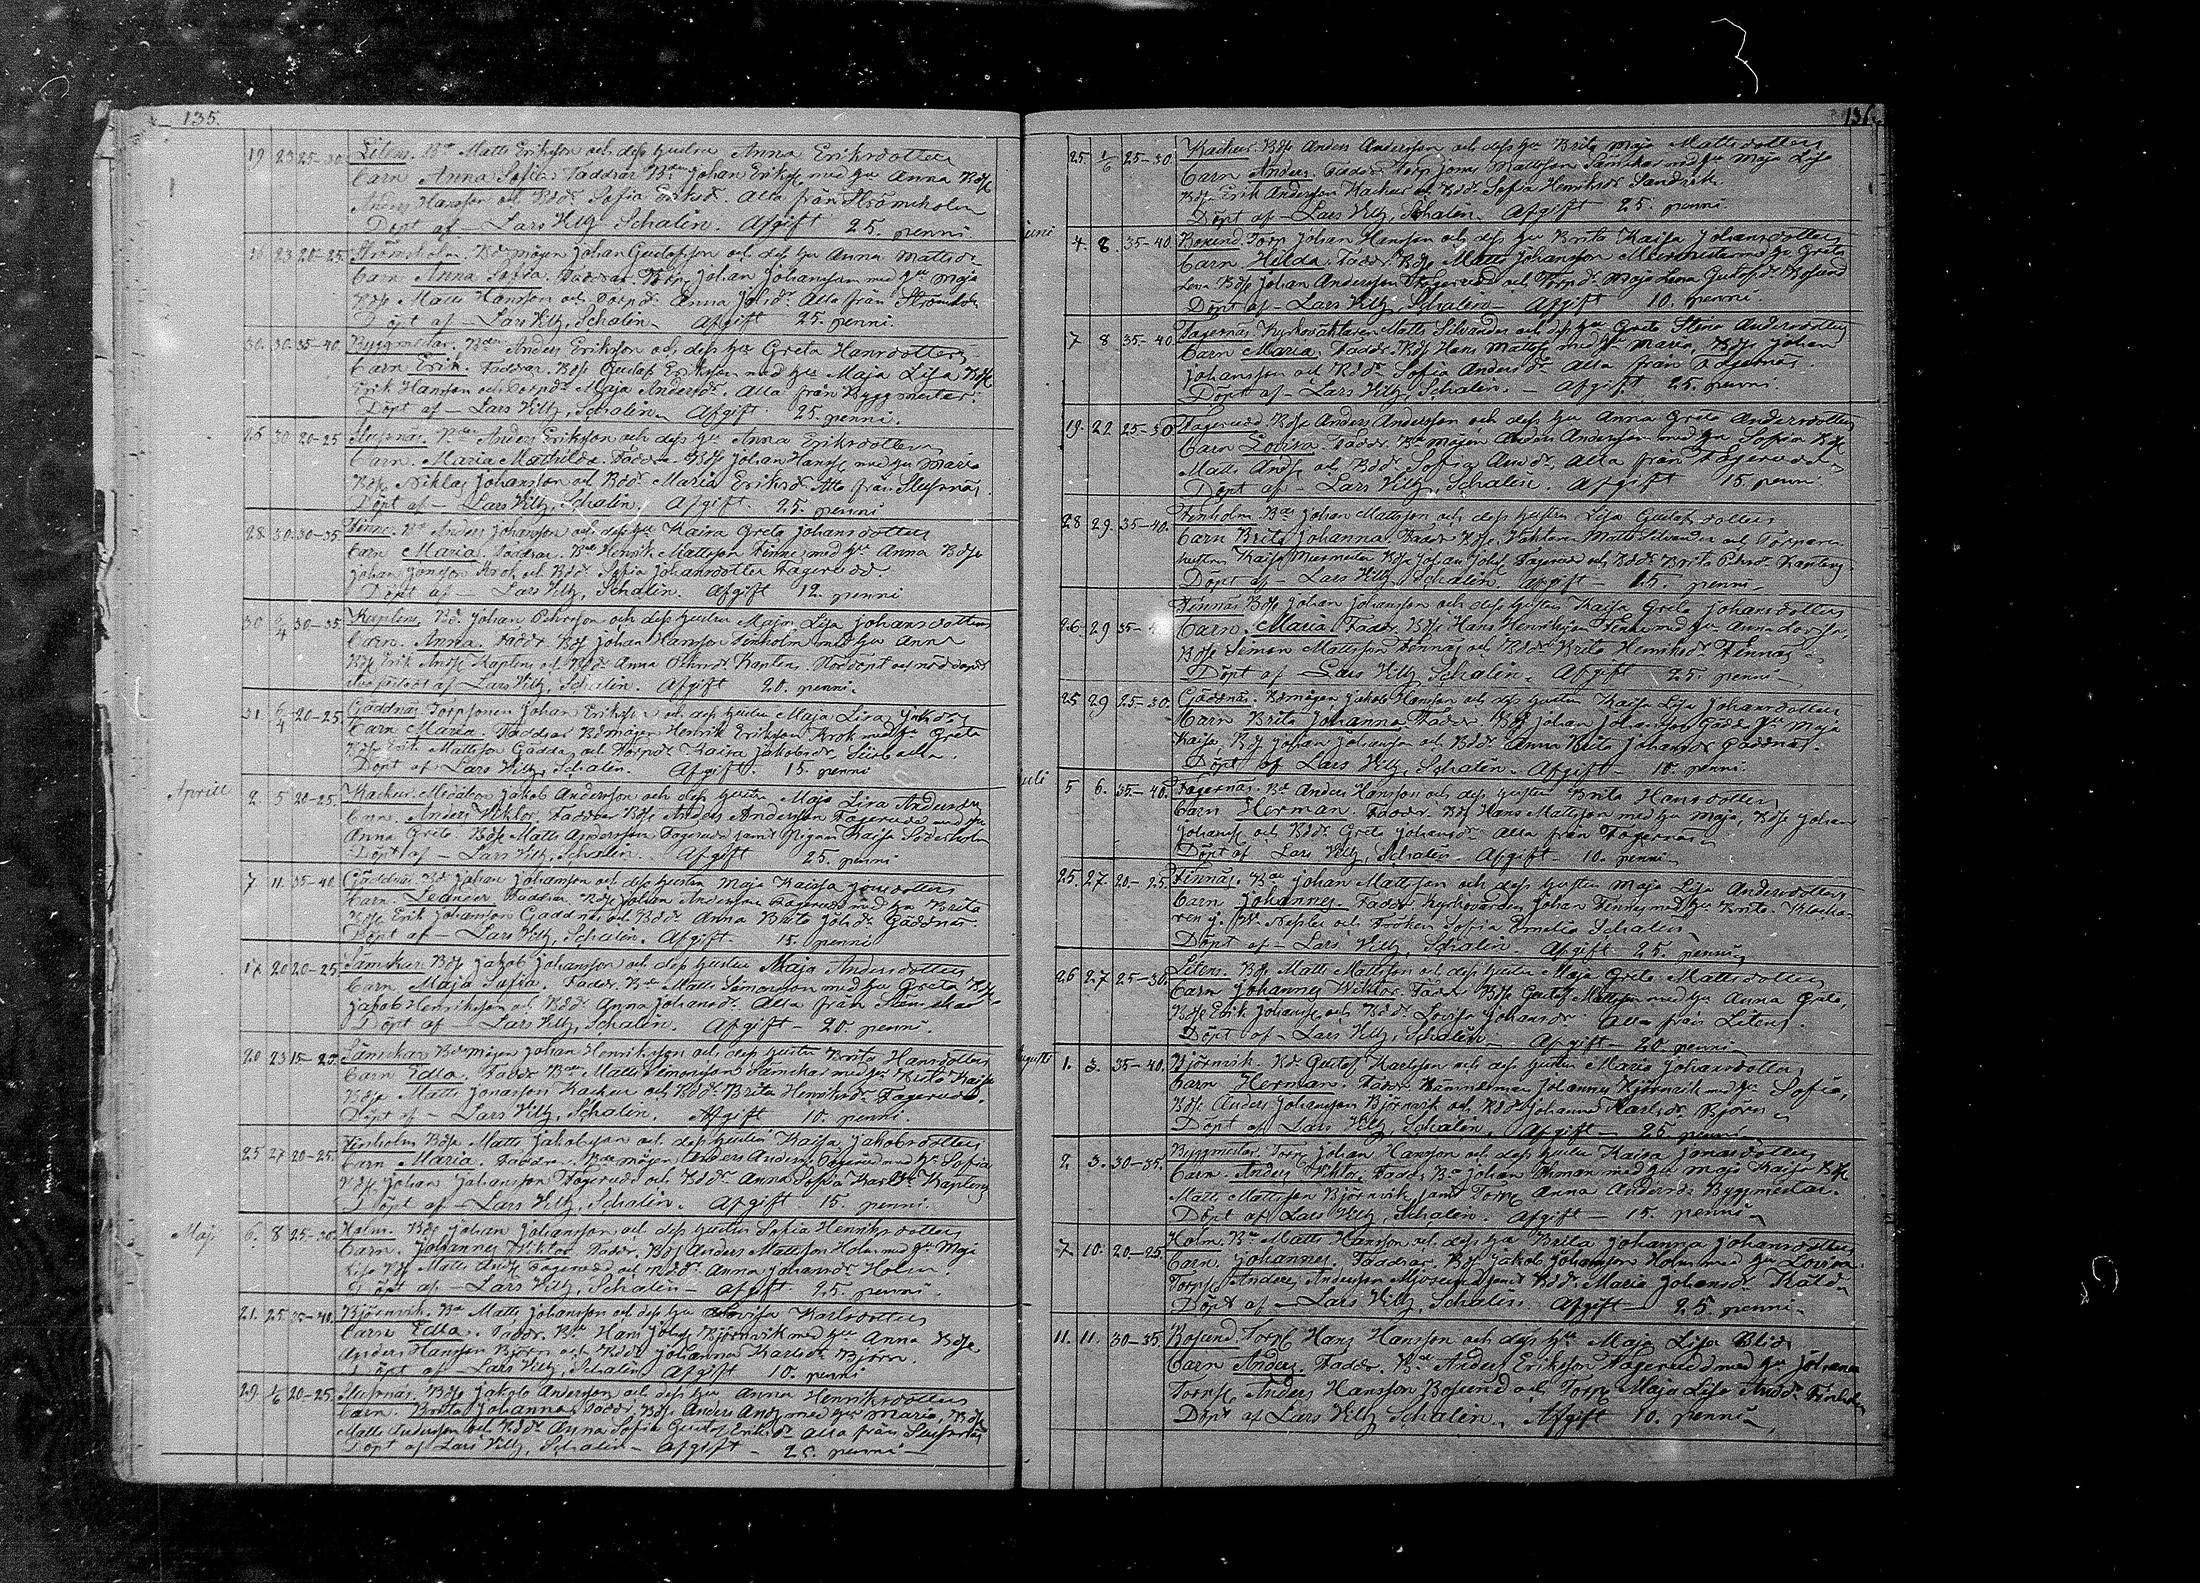 135.
19 23 25-30. Litens. Bn Matts Eriksson och dess hustru Anna Eriksdotter
Barn Anna Sofia. Faddrar Bn Johan Erikss. med hu Anna Bds.
Anders Hansson och Bdd. Sofia Eriksd. Alla från Strömsholm
Döpt af – Lars Vilh. Schalin. Afgift 25. penni.
23 20-25. Strömsholm. Bdmågen Johan Gustafsson och dess hu Anna Mattsdr
Barn Anna Sofia. Faddrar. Bds. Johan Johansson med hu Maja
Bds. Matts Hansson och Torpd. Anna Johd. Alla från Strömsholm
Döpt af – Lars Vilh. Schalin. Afgift 25. penni.
30. 30. 35-40. Byggmestar. Bden Anders Eriksson och dess hu Greta Hansdotter
Barn Erik. Faddrar. Bds. Gustaf Eriksson med hu Maja Lisa, Bds.
Erik Hansson och Torpd. Maja Andersd. Alla från Byggmestar.
Döpt af – Lars Vilh. Schalin. Afgift 25. penni.
25 30 20-25 Slussnäs. Bden Anders Eriksson och dess hu Anna Eriksdotter
Barn. Maria Mathilda. Faddrar Bds. Johan Hanss. med hu Maria
Bds. Niklas Johansson och Bdd. Maria Eriksd. Alla från Slussnäs.
Döpt af – Lars Vilh. Schalin. Afgift. 25. penni
28 30. 30-35 Finne. Bn Anders Johansson och dess hu Kaisa Greta Johansdotter
Barn Maria. Faddrar. Bn Henrik Mattsson Finne med hu Anna Bds.
Johan Jönsson Krok och Bdd. Sofia Johansdotter Fagerudd.
Döpt af – Lars Vilh. Schalin. Afgift 12. penni
30 2/4 30-35 Kaptens. Bd. Johan Pehrsson och dess hustru Maja Lisa Johansdotter
Barn. Anna. Faddr. Bds Johan Hansson Finholm med hu Anna
Bds. Erik Ands. Kaptens och Bdd. Anna Pehrsd. Kaptens.
af Lars Vilh. Schalin. Afgift 20. penni.
31. 6/4 20-25. Gäddnäs Torpsonen Johan Eriksson och dess hustru Maja Lisa Jakobsd.
Barn Maria. Faddrar Bdmågen Henrik Eriksson Krok med hu Greta
Bds. Erik Mattsson Gädda och Torpd. Kaisa Jakobsdr.
Döpt af – Lars Vilh. Schalin. Afgift. 15. penni
Aprill 2. 5 20-25. Kackur. Jakob Andersson och dess hustru Maja Lisa Andersdr
Barn. Anders Viktor. Faddrar Bds. Anders Andersson Fagerudd med hu
Anna Greta. Bds. Matts Andersson Fagerudd samt Pigan Kaisa Söderholm
Döpt af – Lars Vilh. Schalin. Afgift 25. penni
7. 11. 35-40. Gäddnäs. Bd. Johan Johansson och dess hustru Maja Kaisa Jonsdotter
Barn. Faddrar. Bds. Johan Andersson Fagerudd med hu Brita
Bds. Erik Johansson Gäddnäs och Bdd. Anna Brita Johd. Gäddnäs.
Döpt af – Lars Vilh. Schalin. Afgift. 15. penni
17. 20 20-25. Sämskar. Bds. Jakob Johansson och dess hustru Maja Andersdotter
Barn Maja Sofia. Faddr. Bn Matts Simonsson med hu Greta Bds.
Jakob Henriksson och Bdd. Anna Johansd. Alla från Sämskar
Döpt af – Lars Vilh. Schalin. Afgift – 20 penni.
20 23 15-20. Sämskar Bdmågen Johan Henriksson och dess hustru Brita Hansdotter
Barn Edla. Faddr. Bn Matts Simonsson Sämskar med hu Brita Kaisa
Bds. Matts Jonasson Kackur och Bdd. Brita Henriksd. Fagerudd.
Döpt af – Lars Vilh. Schalin. Afgift 10. penni.
25 27 20-25. Finholm Bds. Matts Jakobsson och dess hustru Kaisa Jakobsdotter
Barn Maria. Faddrar. Bdmågen Anders Anderss. Fagerudd med hu Sofia
Bds. Johan Johansson Fagerudd och Bdd. Anna Sofia Karlsd. Kaptens
Döpt af – Lars Vilh. Schalin. Afgift. 15. penni.
Maj 6. 8 25-30. Holm. Bds. Johan Johansson och dess hustru Sofia Henriksdotter
Barn. Johannes Viktor. Faddr. Bds Anders Mattsson Holm med hu Maja
Lisa Bds. Matts Ands. Fagerudd och Bdd. Anna Johansd. Holm.
Döpt af – Lars Vilh. Schalin – Afgift. 25. penni.
21. 25. 35-40. Björnvik. Bn Matts Johansson och dess hu Lovisa Karlsdotter
Barn Edla. Faddr. Bn Hans Johss. Björnvik med hu Anna Bds.
Anders Hansson Björn och Bdd. Johanna Karlsd. Björn.
Döpt af – Lars Vilh. Schalin. Afgift 10. penni
29. 1/6 20-25. Slussnäs. Bds. Jakob Andersson och dess hu Anna Henriksdotter
Barn. Brita Johanna. Faddr. Bds. Anders Ands. med hu Maria, Bds.
Matts Andersson och Bdd. Anna Sofia Alla från Slussnäs
Döpt af Lars Vilh. Schalin – Afgift – 25. penni
136.
25 1/6 25-30. Kackur. Bds. Anders Andersson och dess hu Brita Maja Mattsdotter
Barn Anders. Faddr. Torp. Jonas Mattsson Sämskar med hu Maja Lisa
Bds. Erik Andersson Kackur och Bdd. Sofia Henriksd. Sandvik.
Döpt af – Lars Vilh. Schalin. Afgift 25. penni.
Juni 4. 8. 35-40. Bosund. Torp. Johan Hansson och dess hu Brita Kaisa Johansdotter
Barn Hilda. Faddr. Bds. Matts Johansson Meirmestar med hu Greta
Lena Bds. Johan Andersson Fagerudd och Torpd. Maja Lena Gustafsd. Bosund
Döpt af – Lars Vilh. Schalin – Afgift 10. penni.
7 8 35-40. Fagernäs Kyrkoväktaren Matts Silvander och dess hu Greta Stina Andersdotter
Barn Maria. Faddr. Bds Hans Mattss. med hu Maria, Bds. Johan
Johansson och Bdd. Sofia Andersdr. Alla från Fagernäs.
Döpt af – Lars Vilh. Schalin. – Afgift. 25. penni.
19. 22. 25-30 Fagerudd Bds. Anders Andersson och dess hu Anna Greta Andersdotter
Barn Lovisa. Faddr. Bdmågen Anders Andersson med hu Sofia Bds.
Matts Ands. och Bdd. Sofia Andd. Alla från Fagerudd
Döpt af – Lars Vilh. Schalin. Afgift 15. penni
28 29. 35-40. Finholm Bds Johan Mattsson och dess hustru Lisa Gustafsdotter
Barn Brita Johanna. Faddr. Väktaren Matts Silvander och Torpare
hustrun Kaisa Bds. Johan Johss. Fagerudd och Bdd. Brita Pehrsd. Kaptens.
Döpt af – Lars Vilh. Schalin. Afgift – 15. penni
26. 29 35- Finnäs Bds. Johan Johansson och dess hustru Kaisa Greta Johansdotter
Barn. Maria. Faddr. Bds. Hans Henriksson Finne med hu Anna Lovisa,
Bds. Simon Mattsson Finnäs och Bdd. Brita Henriksd. Finnäs –
Döpt af – Lars Vilh. Schalin. Afgift – 25. penni –
25 29 25-30. Gäddnäs. Bdmågen Jakob Hansson och dess hustru Kaisa Lisa Johansdotter
Barn Brita Johanna. Faddr. Bds Johan Johansson Gädd hu Maja
Kaisa, Bds. Johan Johansson och Bdd. Anna Brita Johansd. Gäddnäs.
Döpt af Lars Vilh. Schalin. Afgift – 10. penni.
Juli 5 6. 35-40. Fagernäs. Bd Anders Hansson och dess hustru Brita Hansdotter
Barn Herman. Faddr. Bds Hans Mattsson med hu Maja, Bds. Johan
Johanss. och Bdd. Greta Johansd. Alla från Fagernäs
Döpt af Lars Vilh. Schalin. Afgift – 10. penni
25. 27. 20-25. Finnäs. Bde Johan Mattsson och dess hustru Maja Lisa Andersdotter
Barn Johannes. Faddr. Kyrkovärden Johan Finne med hu Brita. Klocka-
ren J. W. Nessler och Fröken Sofia Emelia Schalin
Döpt af – Lars Vilh. Schalin. Afgift – 25. penni
26 27 25-30. Litens. Bds. Matts Mattsson och dess hustru Maja Greta Mattsdotter
Barn Johannes Wiktor. Faddr. Bds. Gustaf Mattsson med hu Anna Greta,
Bds. Erik Johanss. och Bdd. Lovisa Johansdr. Alla från Litens.
Döpt af – Lars Vilh. Schalin – Afgift – 20. penni
Augusti 1. 3. 35-40. Björnvik. Bd. Gustaf Karlsson och dess hustru Maria Johansdotter
Barn Herman. Faddr. Nämndeman Johannes Björnvik med hu Sofia,
Bds. Anders Johansson Björnvik och Bdd. Johanna Karlsdr. Björn
Döpt af Lars Vilh. Schalin. Afgift – 25. penni
2. 3. 30-35. Byggmestar. Torp. Johan Hansson och dess hustru Kaisa Jonasdotter
Barn. Anders Viktor. Faddr. Bn Johan Öhman med hu Maja Kaisa Bds
Matts Mattsson Björnvik samt Torp. Anna Andersdr Byggmestar.
Döpt af Lars Vilh. Schalin. Afgift – 15. penni
7. 10. 20-25 Holm. Bn Matts Hansson och dess hu Brita Johanna Johansdotter
Barn. Johannes. Faddrar. Bds Jakob Johansson Holm med hu Lovisa.
Torps. Anders Andersson samt Bdd. Maria Johansd.
Döpt af – Lars Vilh. Schalin. Afgift – 25. penni
11. 11. 30-35. Bosund. Torps. Hans Hansson och dess hu Maja Lisa Blid
Barn Anders. Faddr. Bde Anders Eriksson Fagerudd med hu Johanna
Torps. Anders Hansson Bosund och Torp. Maja Lisa Andd. Finholm
Döpt af Lars Vilh Schalin, Afgift 10. penni